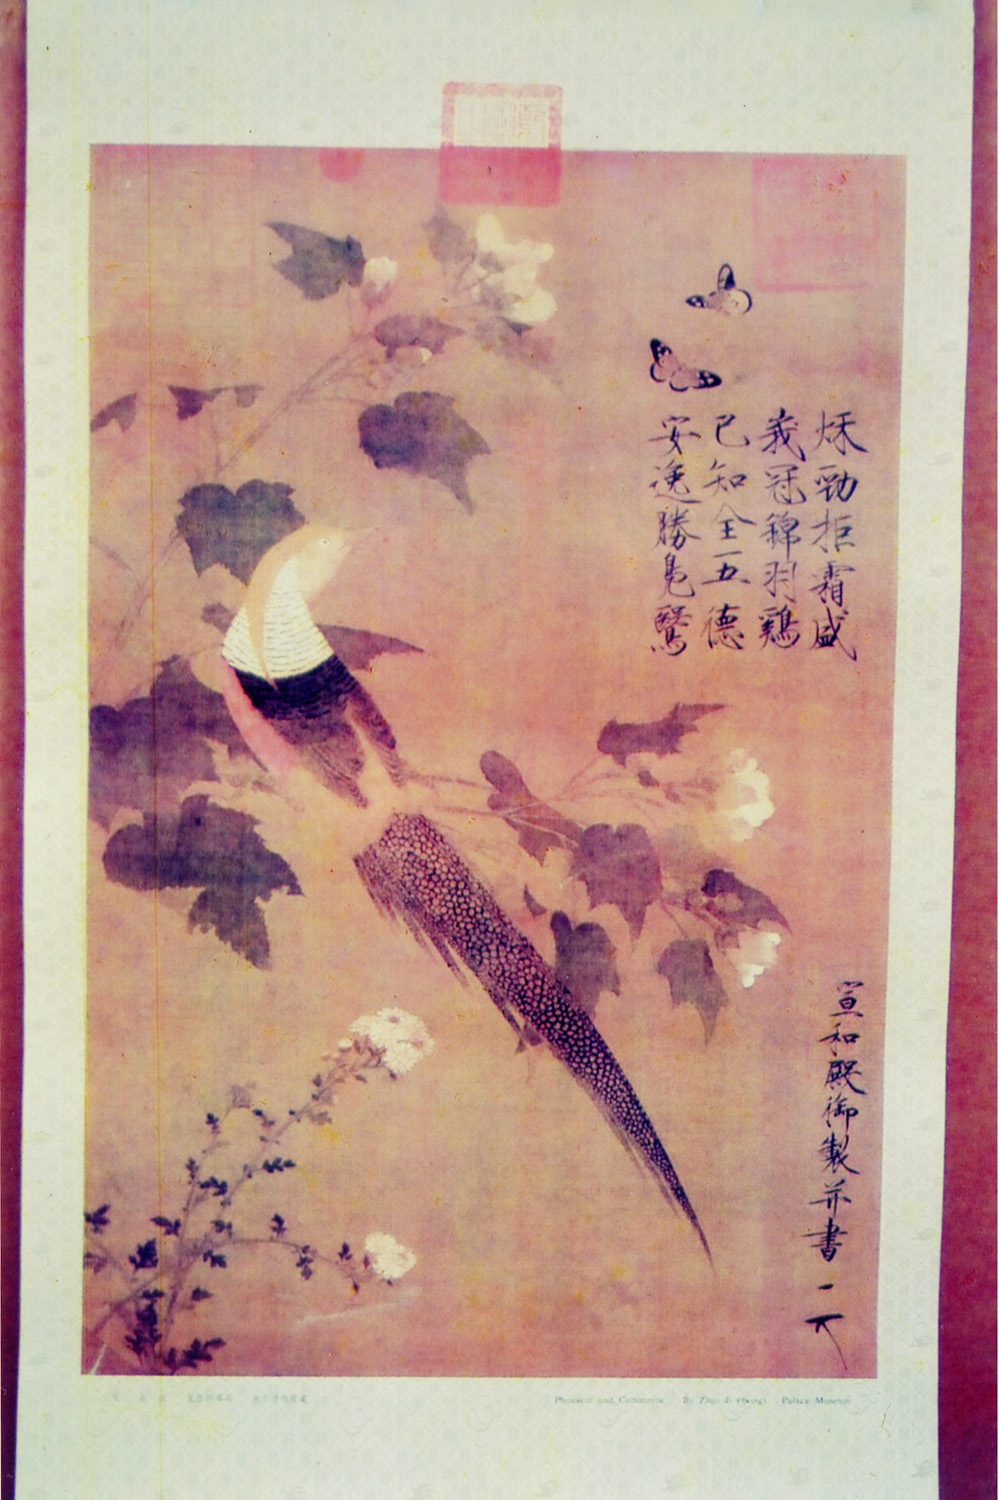 秌勁拒霜盛
峩冠錦羽鷄
已知全五德
安逸勝鳧鷖
宣和殿御製并書
Pheasant and By Zhao Ji (Song) Palace Museum